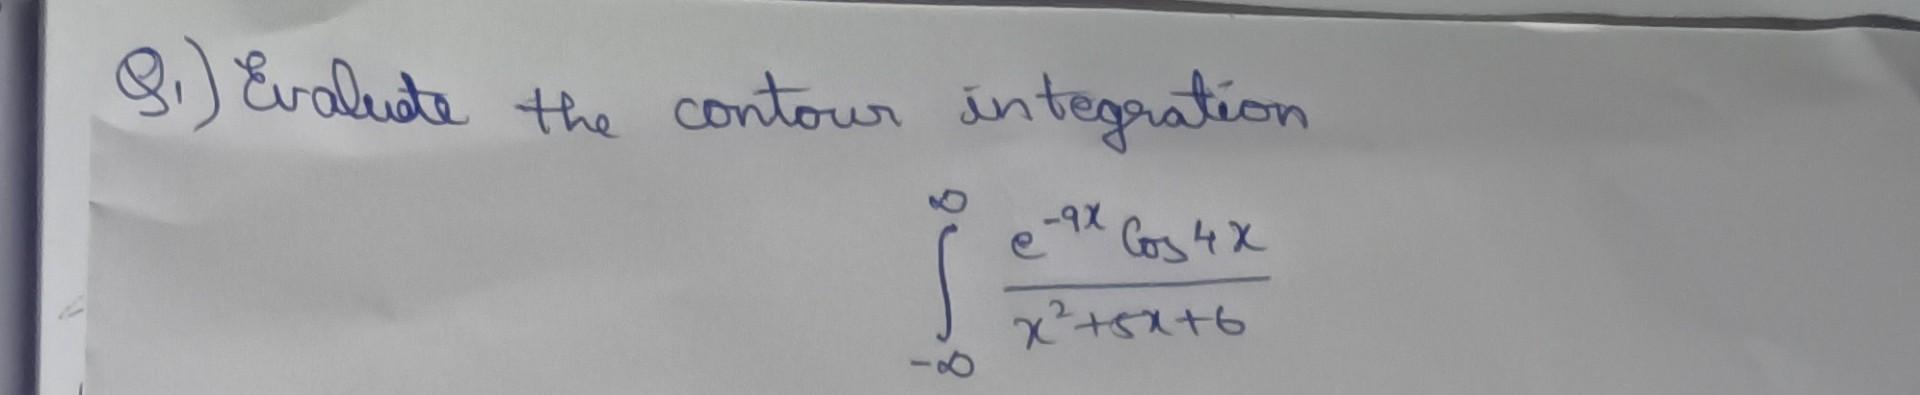 Q.1) Evaluate the contour integration
∞
∫ e^{-9x} Cos 4x / x²+5x+6
-∞